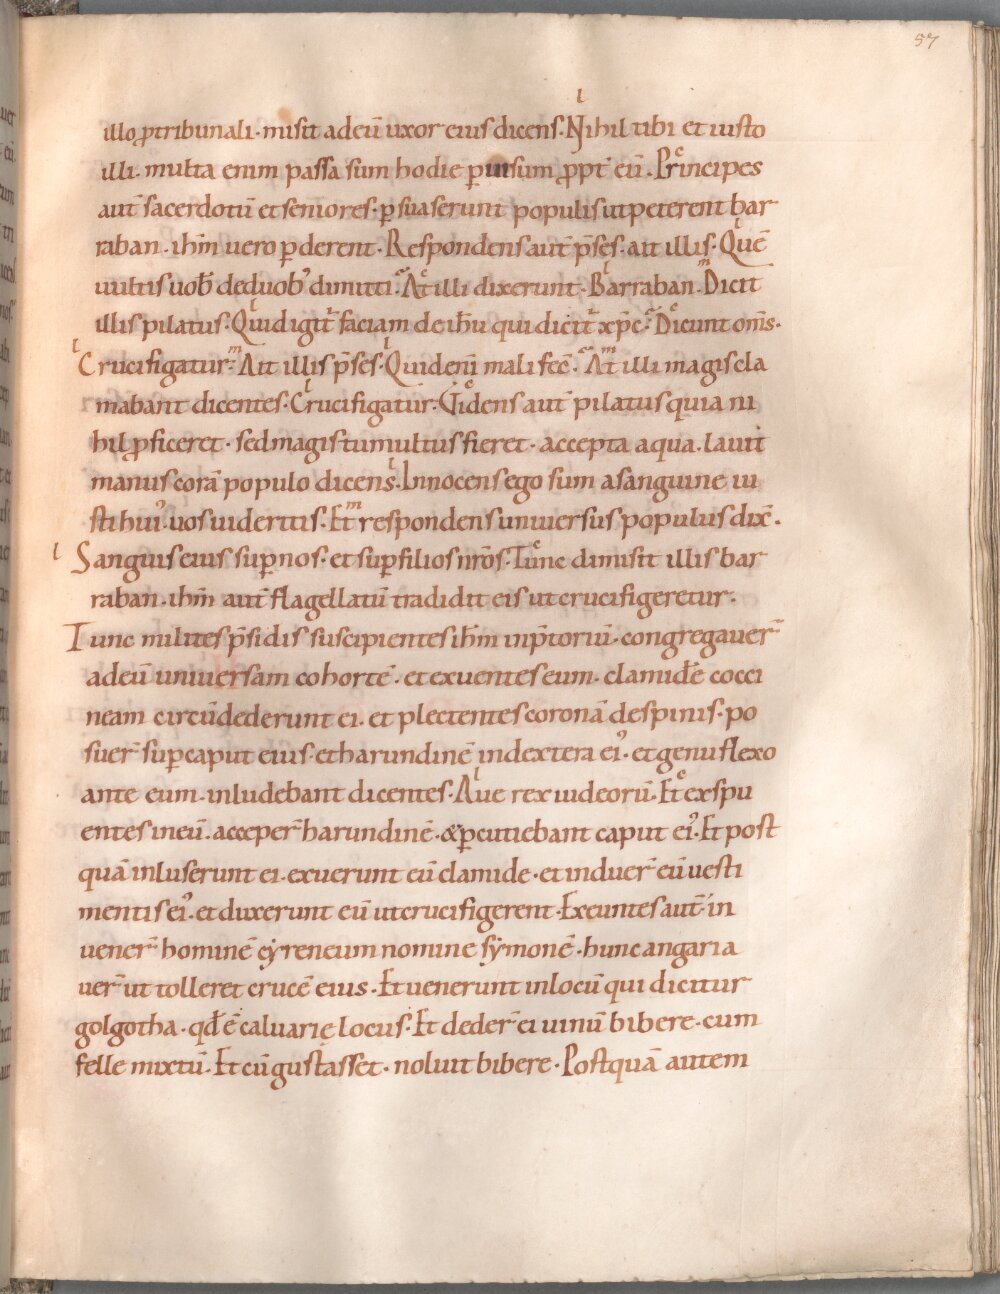 57
illo ꝓtribunali·misit adeū uxor eius dicens·Nihil tibi et iusto
illi·multa enim passa sum hodie ꝑ uisum ꝓpt̄ eū·Principes
aut̄ sacerdotū et seniores·ꝑsuaserunt populis ut peterent bar
raban·ihm̄ uero ꝑderent·Respondens aut̄ p̄ses·ait illis·Quē
uultis uob̄ de duob; dimitti·At illi dixerunt·Barraban·Dicit
illis pilatus·Quid igit̄ faciam de ihū qui dicit̄ xp̄c·Dicunt om̄s·
Crucifigatur·Ait illis p̄ses·Quid eni̅ mali fec̄·At illi magis cla
mabant dicentes·Crucifigatur·Uidens aut̄ pilatus quia ni
hil ꝓficeret·sed magis tumultus fieret·accepta aqua·lauit
manus corā populo dicens·Innocens ego sum a sanguine iu
sti hui᾽·uos uideritis·Et respondens uniuersus populus dix̄·
Sanguis eius suꝑ nos·et suꝑ filios nr̄os·Tunc dimisit illis bar
raban·ihm̄ aut̄ flagellatū tradidit eis ut crucifigeretur·
Tunc milites p̄sidis suscipientes ihm̄ in p̄toriū·congregauer̄
adeū uniuersam cohortē·et exuentes eum·clamidē cocci
neam circūdederunt ei·et plectentes coronā de spinis·po
suer̄ suꝑ caput eius·et harundinē in dextera ei᾽·et genu flexo
ante eum·inludebant dicentes·Aue rex iudeorū·Et exspu
entes in eū·acceper̄ harundinē·&ꝑcutiebant caput ei᾽·Et post
quā inluserunt ei·exuerunt eū clamide·et induer̄ eū uesti
mentis ei᾽·et duxerunt eū ut crucifigerent·Exeuntes aut̄ in
uener̄ hominē cẏreneum nomine sẏmonē·hunc angaria
uer̄ ut tolleret crucē eius·Et uenerunt in locū qui dicitur
golgotha·qd̄ ē caluarię locus·Et deder̄ ei uinū bibere·cum
felle mixtū·Et cū gustasset·noluit bibere·Postquā autem